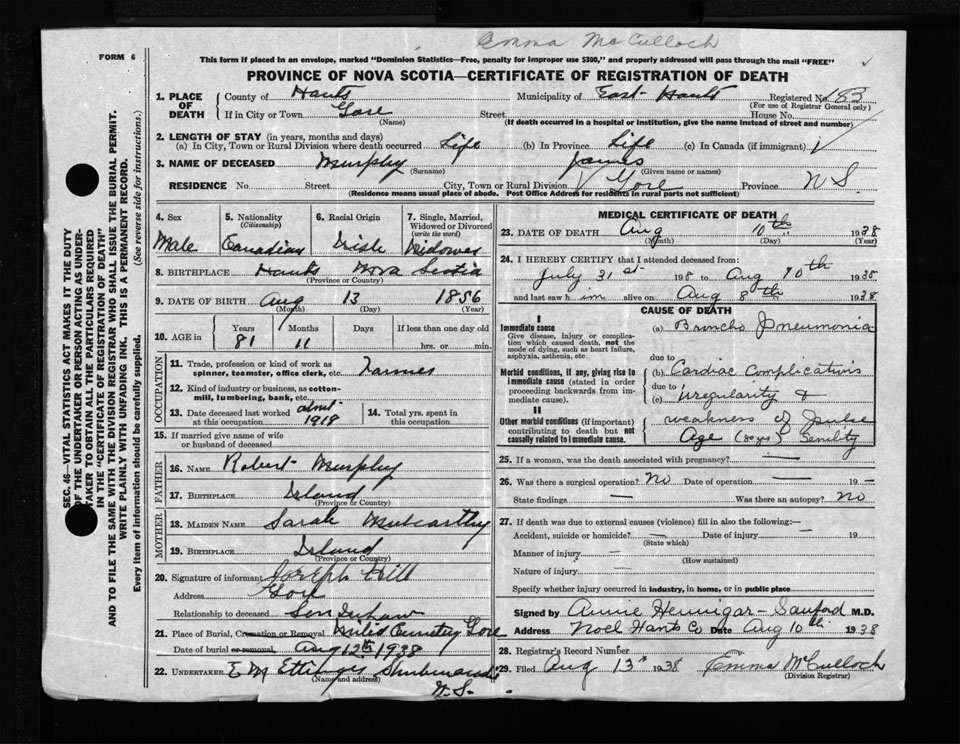 Emma McCulloch
FORM 6
This form if placed in an envelope, marked "Dominion Statistics—Free, penalty for improper use $300," and properly addressed will pass through the mail "FREE"
PROVINCE OF NOVA SCOTIA—CERTIFICATE OF REGISTRATION OF DEATH
SEC. 46—VITAL STATISTICS ACT MAKES IT THE DUTY
OF THE UNDERTAKER OR PERSON ACTING AS UNDER-
TAKER TO OBTAIN ALL THE PARTICULARS REQUIRED
IN THE "CERTIFICATE OF REGISTRATION OF DEATH"
AND TO FILE THE SAME WITH THE DIVISION REGISTRAR WHO SHALL ISSUE THE BURIAL PERMIT.
WRITE PLAINLY WITH UNFADING INK. THIS IS A PERMANENT RECORD.
Every item of information should be carefully supplied. (See reverse side for instructions.)
1. PLACE OF DEATH County of Hants Municipality of East Hants Registered No. 183
(For use of Registrar General only)
If in City or Town Gore Street House No.
(Name) (If death occurred in a hospital or institution, give the name instead of street and number)
2. LENGTH OF STAY (in years, months and days)
(a) In City, Town or Rural Division where death occurred Life (b) In Province Life (c) In Canada (if immigrant)
3. NAME OF DECEASED Murphy James
(Surname) (Given name or names)
RESIDENCE No. Street City, Town or Rural Division Gore Province N S.
(Residence means usual place of abode. Post Office Address for residents in rural parts not sufficient)
4. Sex
Male
5. Nationality
(Citizenship)
Canadian
6. Racial Origin
Irish
7. Single, Married,
Widowed or Divorced
(write the word)
Widower
8. BIRTHPLACE Hants Nova Scotia
(Province or Country)
9. DATE OF BIRTH Aug 13 1856
(Month) (Day) (Year)
10. AGE in Years Months Days If less than one day old
81 11 hrs. or min.
OCCUPATION
11. Trade, profession or kind of work as
spinner, teamster, office clerk, etc. Farmer
12. Kind of industry or business, as cotton-
mill, lumbering, bank, etc.
13. Date deceased last worked
at this occupation 1918
14. Total yrs. spent in
this occupation
15. If married give name of wife
or husband of deceased
FATHER
16. NAME Robert Murphy
17. BIRTHPLACE Irland
(Province or Country)
MOTHER
18. MAIDEN NAME Sarah
19. BIRTHPLACE Irland
(Province or Country)
20. Signature of informant Joseph Hill
Address Gore
Relationship to deceased Son Inlaw
21. Place of Burial, Cremation or Removal Cemetery Gore
Date of burial or removal Aug 12th 1938
22. UNDERTAKER E M Ettinger Shubenacadie
(Name and address)
N.S.
MEDICAL CERTIFICATE OF DEATH
23. DATE OF DEATH Aug 10th 1938
(Month) (Day) (Year)
24. I HEREBY CERTIFY that I attended deceased from:
July 31st 1938 to Aug 10th 1938
and last saw him alive on Aug 8th 1938
CAUSE OF DEATH
I
Immediate cause
Give disease, injury or complica-
tion which caused death, not the
mode of dying, such as heart failure,
asphyxia, asthenia, etc.
(a) Broncho Pneumonia
due to
Morbid conditions, if any, giving rise to
immediate cause (stated in order
proceeding backwards from im-
mediate cause).
(b) Cardiac Complications
due to
(c) irregularity &
II
Other morbid conditions (if important)
contributing to death but not
causally related to immediate cause.
weakness of Pulse
Age (80 yrs) Senility
25. If a woman, was the death associated with pregnancy? —
26. Was there a surgical operation? No Date of operation — 19 —
State findings — Was there an autopsy? No
27. If death was due to external causes (violence) fill in also the following:—
Accident, suicide or homicide? — Date of injury — 19
(State which)
Manner of injury —
(How sustained)
Nature of injury —
Specify whether injury occurred in Industry, in home, or in public place
Signed by Annie Hennigar-Sanford M.D.
Address Noel Hants Co Date Aug 10th 1938
28. Registrar's Record Number
29. Filed Aug 13th 1938 Emma McCulloch
(Division Registrar)